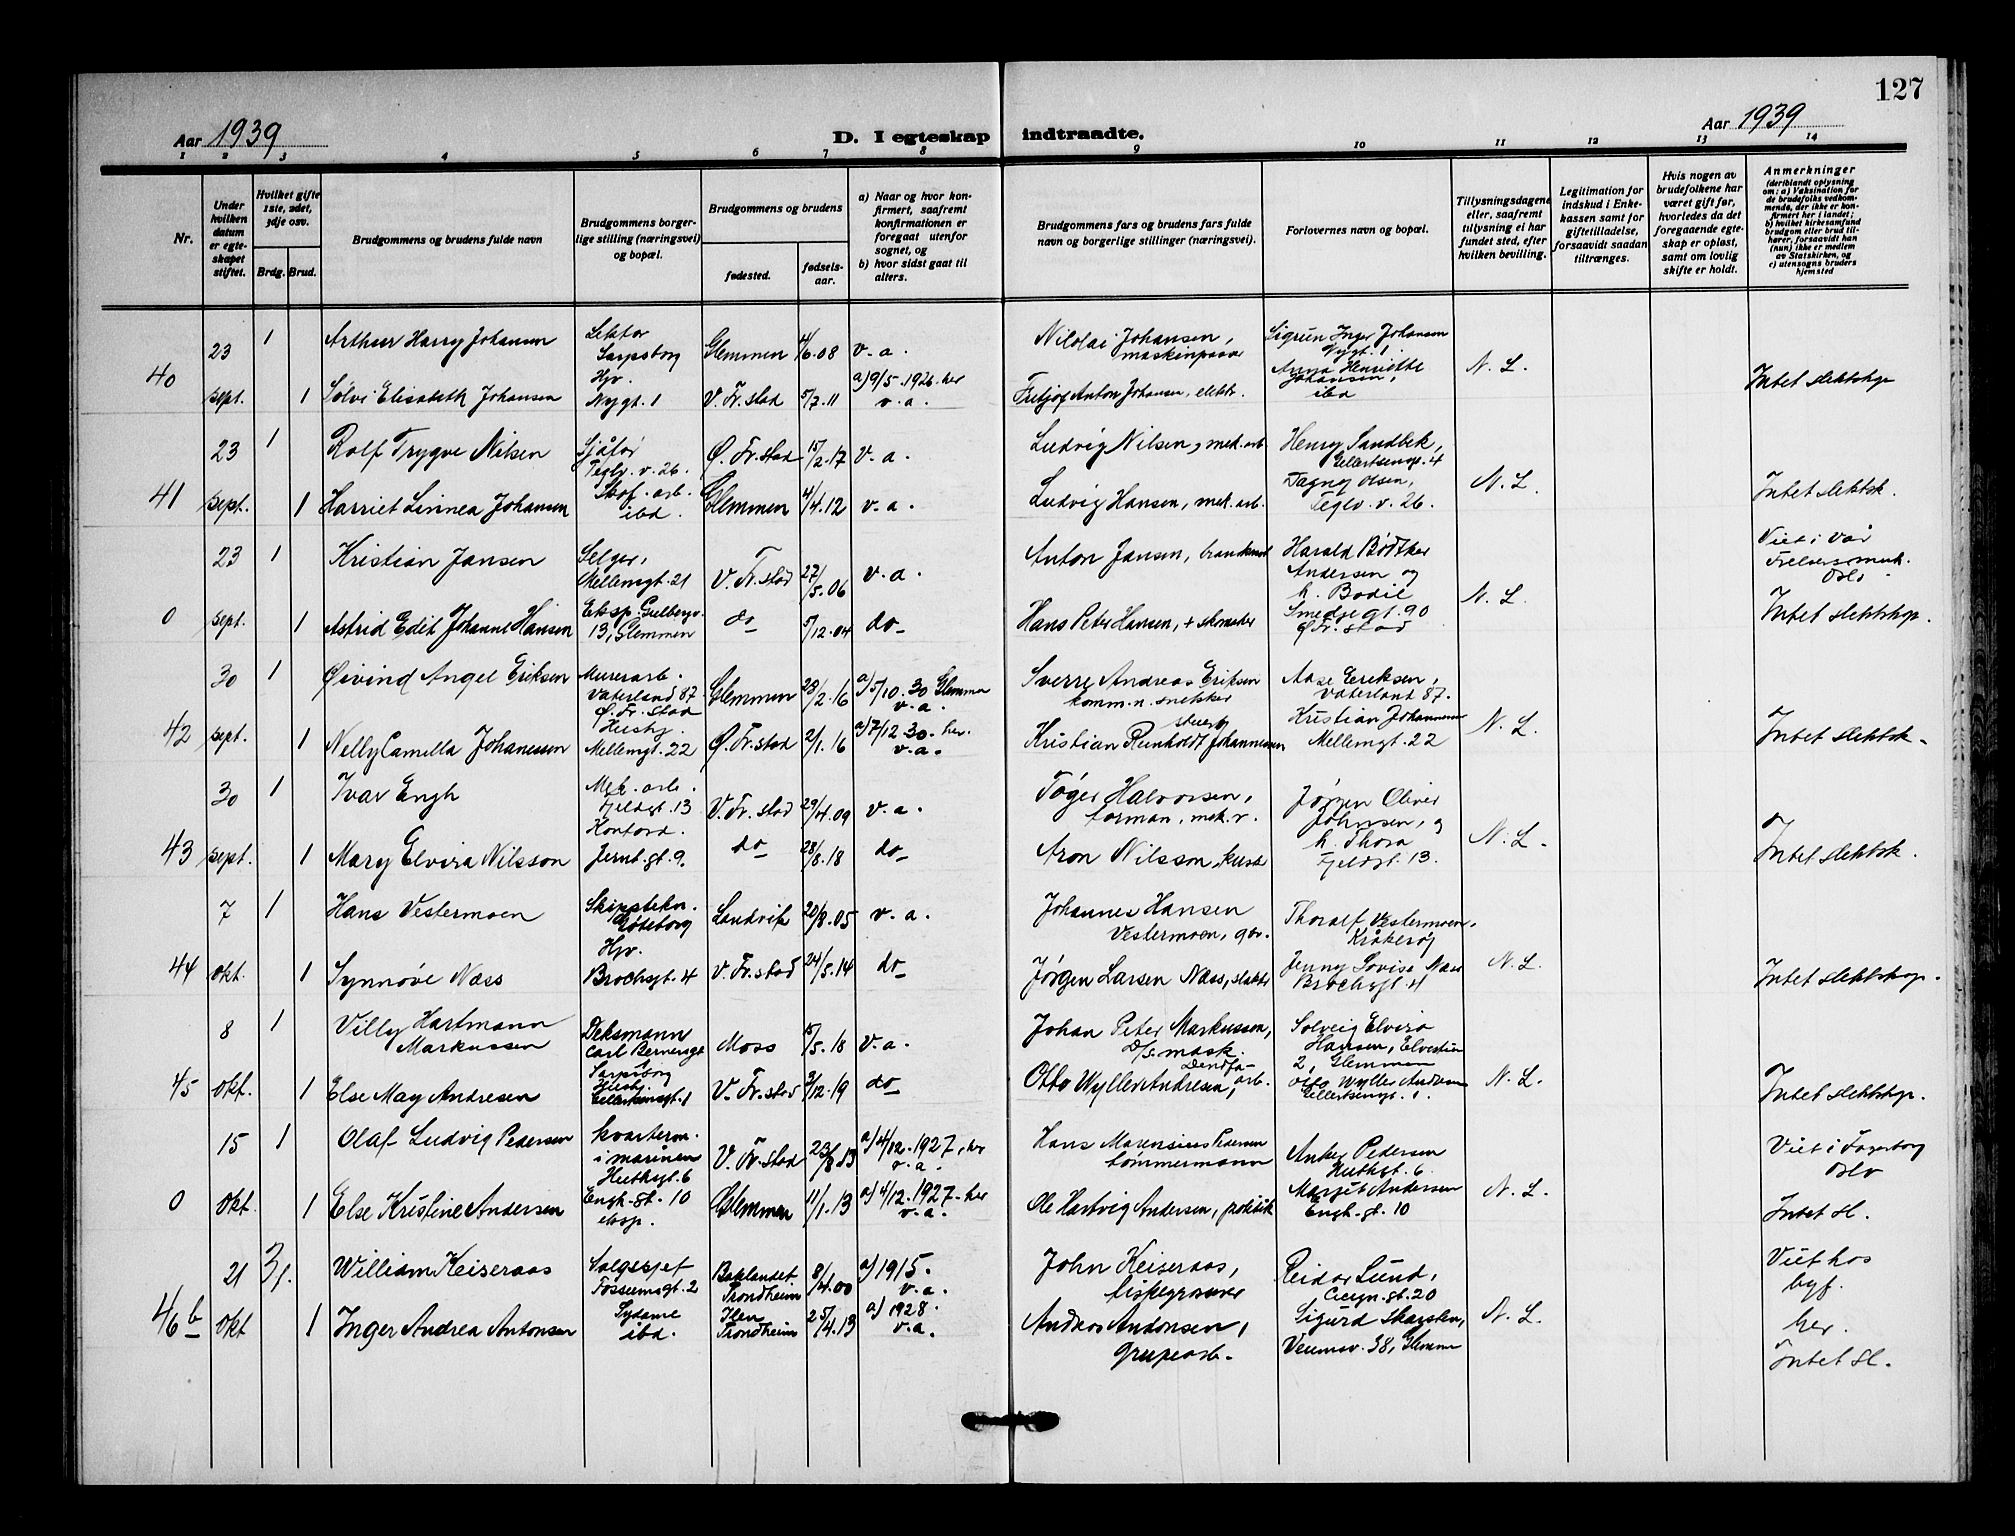 127
Aar 1939
D. I egteskap indtraadte.
Aar 1939
1 2 3 4 5 6 7 8 9 10 11 12 13 14
Nr.
Under hvilken datum er egteskapet stiftet.
Hvilket gifte 1ste, 2det, 3dje osv.
Brdg. Brud.
Brudgommens og brudens fulde navn
Brudgommens borgerlige stilling (næringsvei) og bopæl.
Brudgommens og brudens
fødested.
fødselsaar.
a) Naar og hvor konfirmert, saafremt konfirmationen er foregaat utenfor sognet, og
b) hvor sidst gaat til alters.
Brudgommens fars og brudens fars fulde navn og borgerlige stillinger (næringsvei).
Forlovernes navn og bopæl.
Tillysningsdagene eller, saafremt tillysning ei har fundet sted, efter hvilken bevilling.
Legitimation for indskud i Enkekassen samt for giftetilladelse, forsaavidt saadan tiltrænges.
Hvis nogen av brudefolkene har været gift før, hvorledes da det foregaaende egteskap er opløst, samt om lovlig skifte er holdt.
Anmerkninger
(deriblandt oplysning om: a) Vaksination for de brudefolks vedkommende, der ikke er konfirmert her i landet; b) hvilket kirkesamfund brudgom eller brud tilhører, forsaavidt han (hun) ikke er medlem av Statskirken, og c) utensogns bruders hjemsted
40
23 1 Arthur Harry Johansen Lektor Sarpsborg Glemmen 4/6.08 v.a. Nikolai Johansen, maskinpasser Sigrun Inger Johansen Nygt. 1.
sept. 1 Sölvi Elisabeth Johansen Hjv. Nygt. 1 V. Fr.stad 5/7.11 a) 9/5.1926. her v.a. Fritjof Anton Johansen, elektr. Anna Henriette Johansen, ibd N. L. Intet slektskp
41
23 1 Rolf Trygve Nilsen Sjåfør Teglv. v. 26. Ø. Fr.stad 15/2.17 v.a. Ludvig Nilsen, mek. arb Henry Sandbek, Gellertsensgt. 4
sept. 1 Harriet Linnea Johansen Skof. arb. ibd. Glemmen 4/4.12 v.a. Ludvig Hansen, mek. arb. Dagny Olsen, Teglv. v. 26. N. L. Intet slektsk.
0
23 1 Kristian Jansen Selger, Mellemgt. 21 V. Fr.stad 27/5.06 v.a. Anton Jansen, Harald Bödtker Andersen og Viet i Vår Frelsers menk. Oslo
sept. 1 Astrid Edit Johanne Hansen Eksp. Gulbergv. 13, Glemmen do 5/12.04 do Hans Peter Hansen, + skomaker h. Bodil Smedjegt. 90 Ø Fr.stad N. L. Intet slektskap.
42
30 1 Øivind Angel Eriksen Murerarb. Vaterland 87 Ø. Fr.stad Glemmen 28/2.16 a) 5/10.30 Glemmen v.a. Sverre Andreas Eriksen komm. n. snekker Aase Eriksen, Vaterland 87.
sept. 1 Nelly Camilla Johanessen Husbj. Mellemgt. 22 Ø. Fr.stad 2/1.16 a) 7/12 30. her. v.a. Kristian Reinholdt Johannessen Kristian Johannessen Mellemgt. 22 N. L. Intet slektsk.
43
30 1 Ivar Engh Mek. arb. Fjeldgt. 13 V. Fr.stad 29/4.09 v.a. Töger Halvorsen, forman, mek. v. Jörgen Oliver Johnsen, og
sept. 1 Mary Elvira Nilsson Kontord. Jernb.gt. 9. do 28/8.18 do Aron Nilsson, h. Thora Fjeldgt. 13. N. L. Intet slektsk.
44
7 1 Hans Vestermoen Skipstekn. Göteborg Landvik 20/8.05 v.a. Johannes Hansen Vestermoen, gbr. Thoralf Vestermoen, Kråkeröy
okt. 1 Synnöve Næss Hjv. Brochsgt. 4 V. Fr.stad 24/5.14 do Jörgen Larsen Næss, slakter Jenny Lovise Næss Brochsgt. 4 N. L. Intet slektskap.
45
8 1 Villy Hartmann Markussen Deksmann Carl Bernersgt Sarpsborg Moss 15/5.18 v.a. Johan Peter Markussen, D/S. mask. Solveig Elvira Hansen, 2, Glemmen
okt. 1 Else May Andresen Husbj. Gellertsensgt. 1 V. Fr.stad 3/12.19 do Otto Wyller Andresen, arb. Otto Wyller Andresen Gellertsengt. 1. N. L. Intet slektskp.
0
15 1 Olaf Ludvig Pedersen kvarterm. i marinen Huthsgt. 6 V. Fr.stad 23/8.13 a) 4/12.1927, her v.a. Hans Marensius Pedersen tömmermann Anker Pedersen Huthsgt. 6. Viet i Fagerborg Oslo
okt. 1 Else Kristine Andersen Engh-gt. 10 eksp. Glemmen 11/1.13 a) 4/12.1927. her v.a. Ole Hartvig Andersen, politik Margit Andersen Engh-gt. 10 N. L. Intet sl.
46b
21 3/1. William Keiseraas Salgssjef Fossumsgt. 2 Baklandet Trondheim 8/4.00 a) 1915. v.a. John Keiseraas, fiskegrosser Reidar Lund, Cicign.gt. 20 Viet hos byf. her.
okt 1 Inger Andrea Antonsen Sydame ibd. Ilen Trondheim 25/4.13 a) 1928. v.a. Andreas Andonsen, grupearb. Sigurd Skarsten, Veumsv. 38, Glemmen N. L. Intet sl.